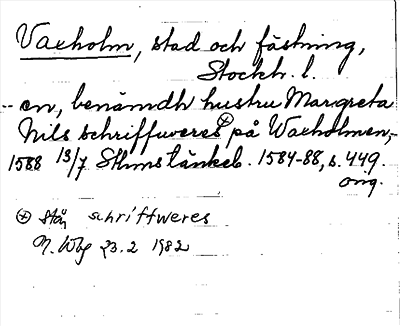 Vaxholm, stad och fästning,
Stockh. l.
-- en, benämdh hustru Margreta
Nils schriffuveres ⊕ på Waxholmen,-
1588 13/7 Sthms tänkeb. 1584-88, s. 449.
orig.
⊕ står schriffweres
N. Wbg 23.2 1982